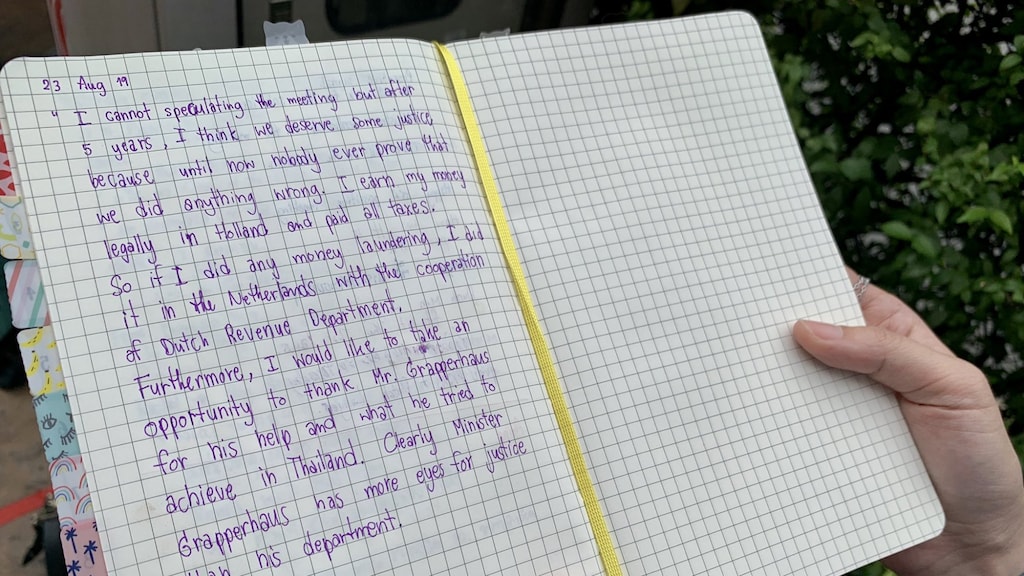 23 Aug 19
" I cannot speculating the meeting but after
5 years, I think we deserve some justice
because until now nobody ever prove that
we did anything wrong. I earn my money
legally in Holland and paid all taxes.
So if I did any money laundering, I did
it in the Netherlands with the cooperation
of Dutch Revenue Department.
Furthermore, I would like to take an
opportunity to thank Mr. Grapperhaus
for his help and what he tried to
achieve in Thailand. Clearly Minister
Grapperhaus has more eyes for justice
than his department.